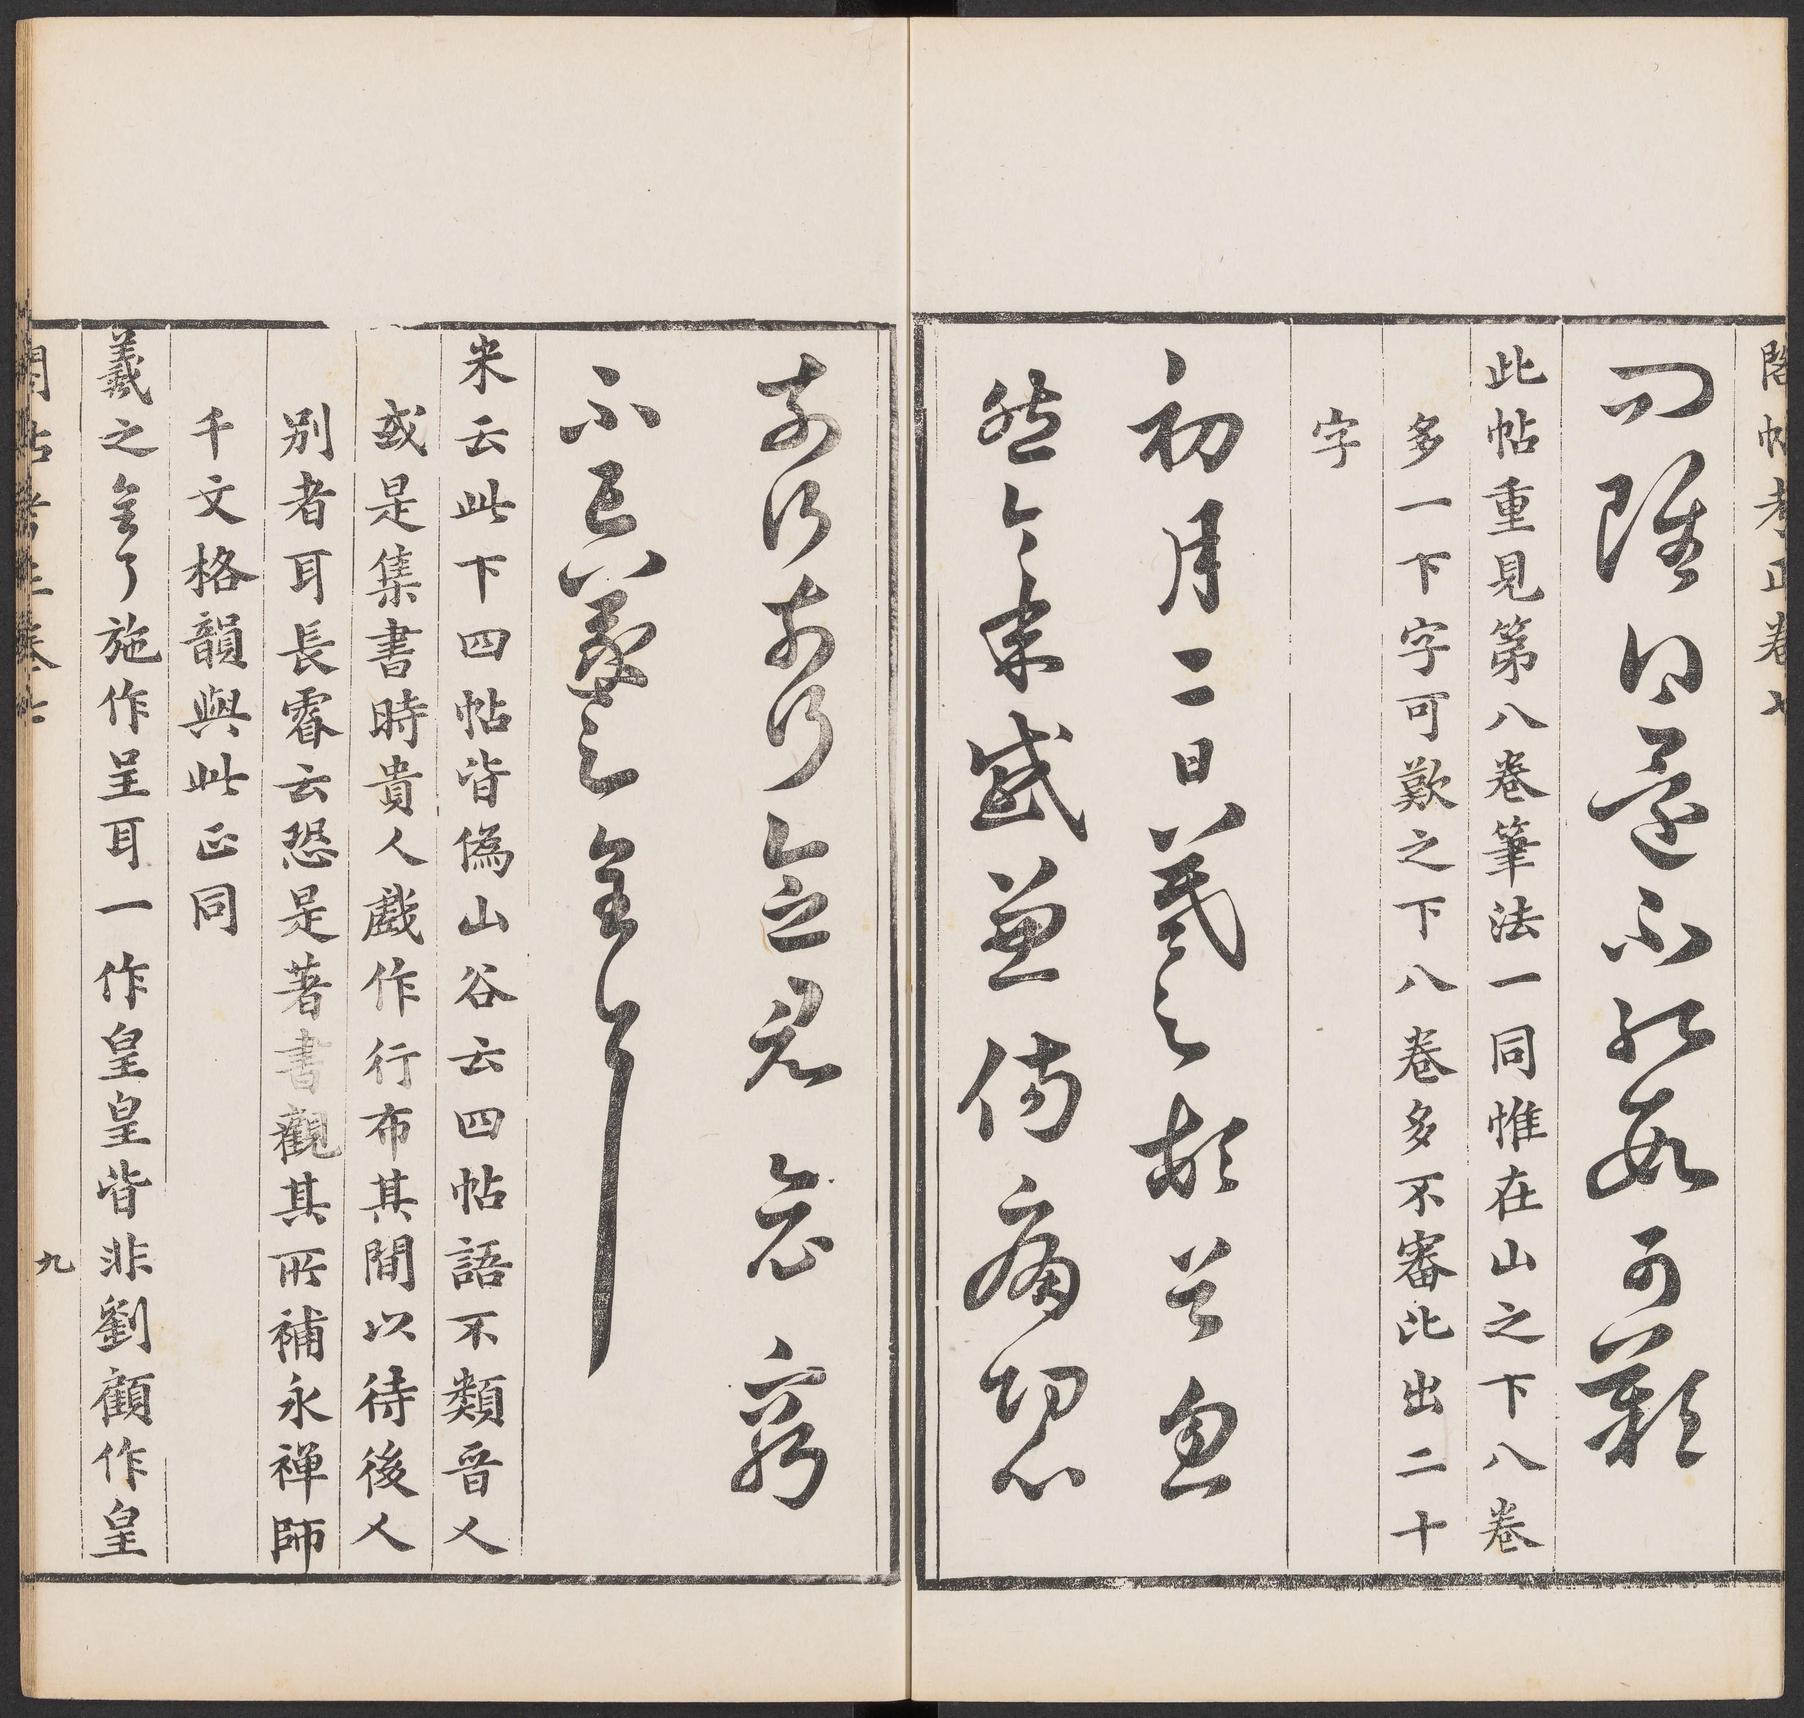 閣帖考正卷七
雖曰還不可歎
此帖重見第八卷筆法一同惟在山之下八卷
多一下字可歎之下八卷多不審比出二十
字
初月二日羲之頓首忽
然今年感兼傷痛切心
奈何奈何念窮
不已羲之
米云此下四帖皆偽山谷云四帖語不類晉人
或是集書時貴人戲作行布其間以待後人
別者耳長睿云恐是著書觀其所補永禪師
千文格韻與此正同
羲之了施作呈耳一作皇皇皆非劉顧作皇
閣帖考正卷七
九